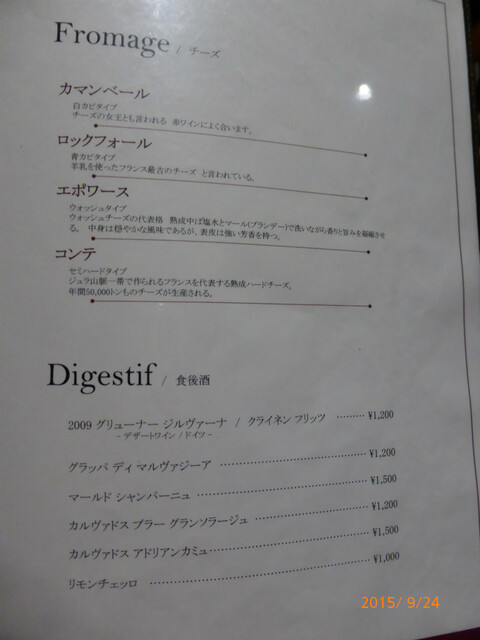 Fromage / チーズ
カマンベール
白カビタイプ
チーズの女王とも言われる 赤ワインによく合います。
ロックフォール
青カビタイプ
羊乳を使ったフランス最古のチーズ と言われている。
エポワース
ウォッシュタイプ
ウォッシュチーズの代表格 熟成中は塩水とマール(ブランデー)で洗いながら香りと旨みを凝縮させ
る。 中身は穏やかな風味であるが、表皮は強い芳香を持つ。
コンテ
セミハードタイプ
ジュラ山脈一帯で作られるフランスを代表する熟成ハードチーズ。
年間50,000トンものチーズが生産される。
Digestif / 食後酒
2009 グリューナー ジルヴァーナ / クライネン フリッツ ……… ¥1,200
- デザートワイン / ドイツ -
グラッパ ディ マルヴァジーア ……………………… ¥1,200
マールド シャンパーニュ ……………………… ¥1,500
カルヴァドス ブラー グランソラージュ ……………… ¥1,200
カルヴァドス アドリアンカミュ ……………………… ¥1,500
リモンチェッロ ……………………………… ¥1,000
2015/ 9/24